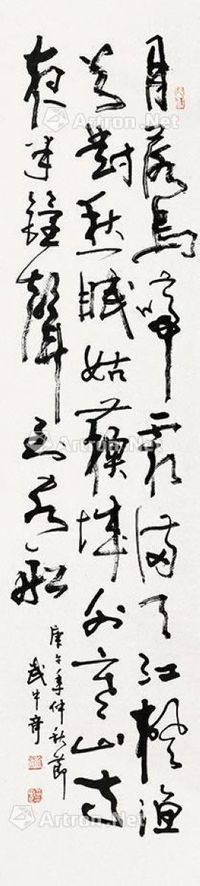 月落烏啼霜滿天江楓漁
火對愁眠姑蘇城外寒山寺
夜半鐘聲到客船
庚午年仲秋節
武中奇
Artron.Net